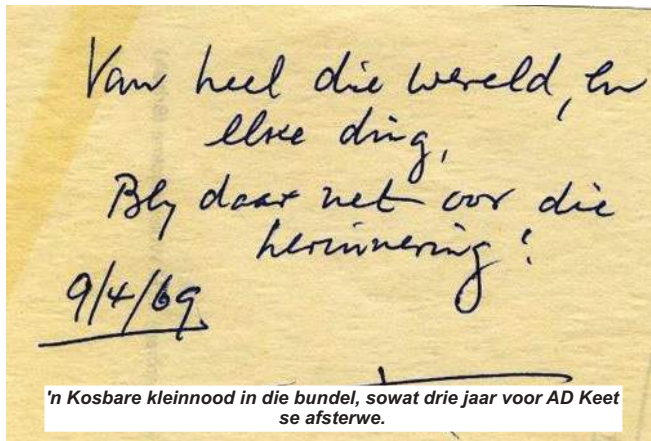 Van heel die wereld, en
elke ding,
Bly daar net oor die
herinnering!
9/4/69
'n Kosbare kleinnood in die bundel, sowat drie jaar voor AD Keet
se afsterwe.